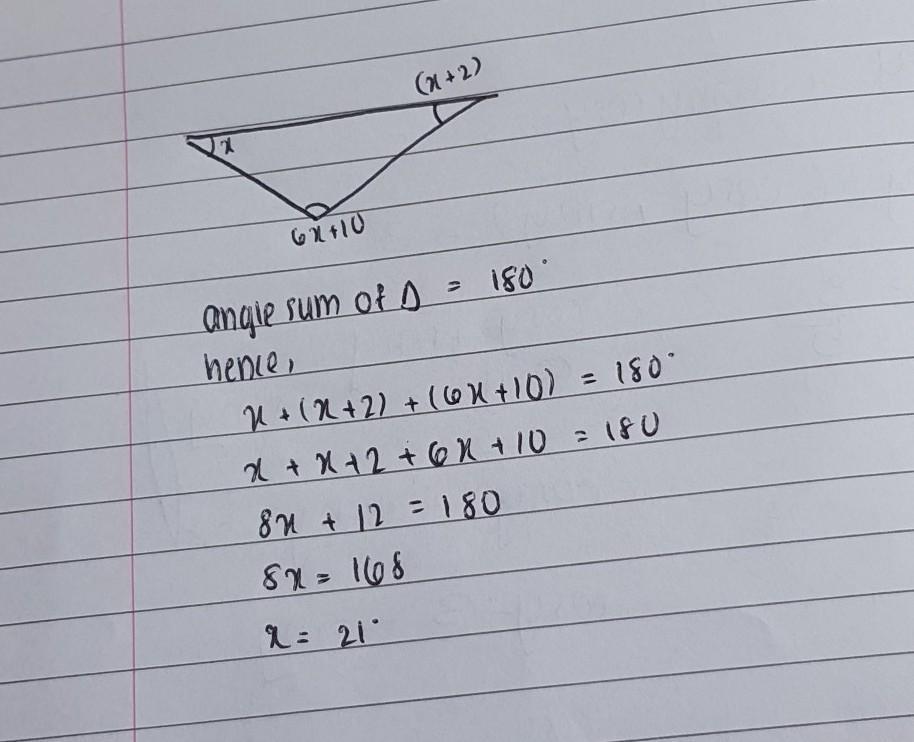 (x+2)
x
6x+10
angle sum of Δ = 180°
hence,
x + (x+2) + (6x+10) = 180°
x + x+2 + 6x + 10 = 180
8x + 12 = 180
8x = 168
x = 21°